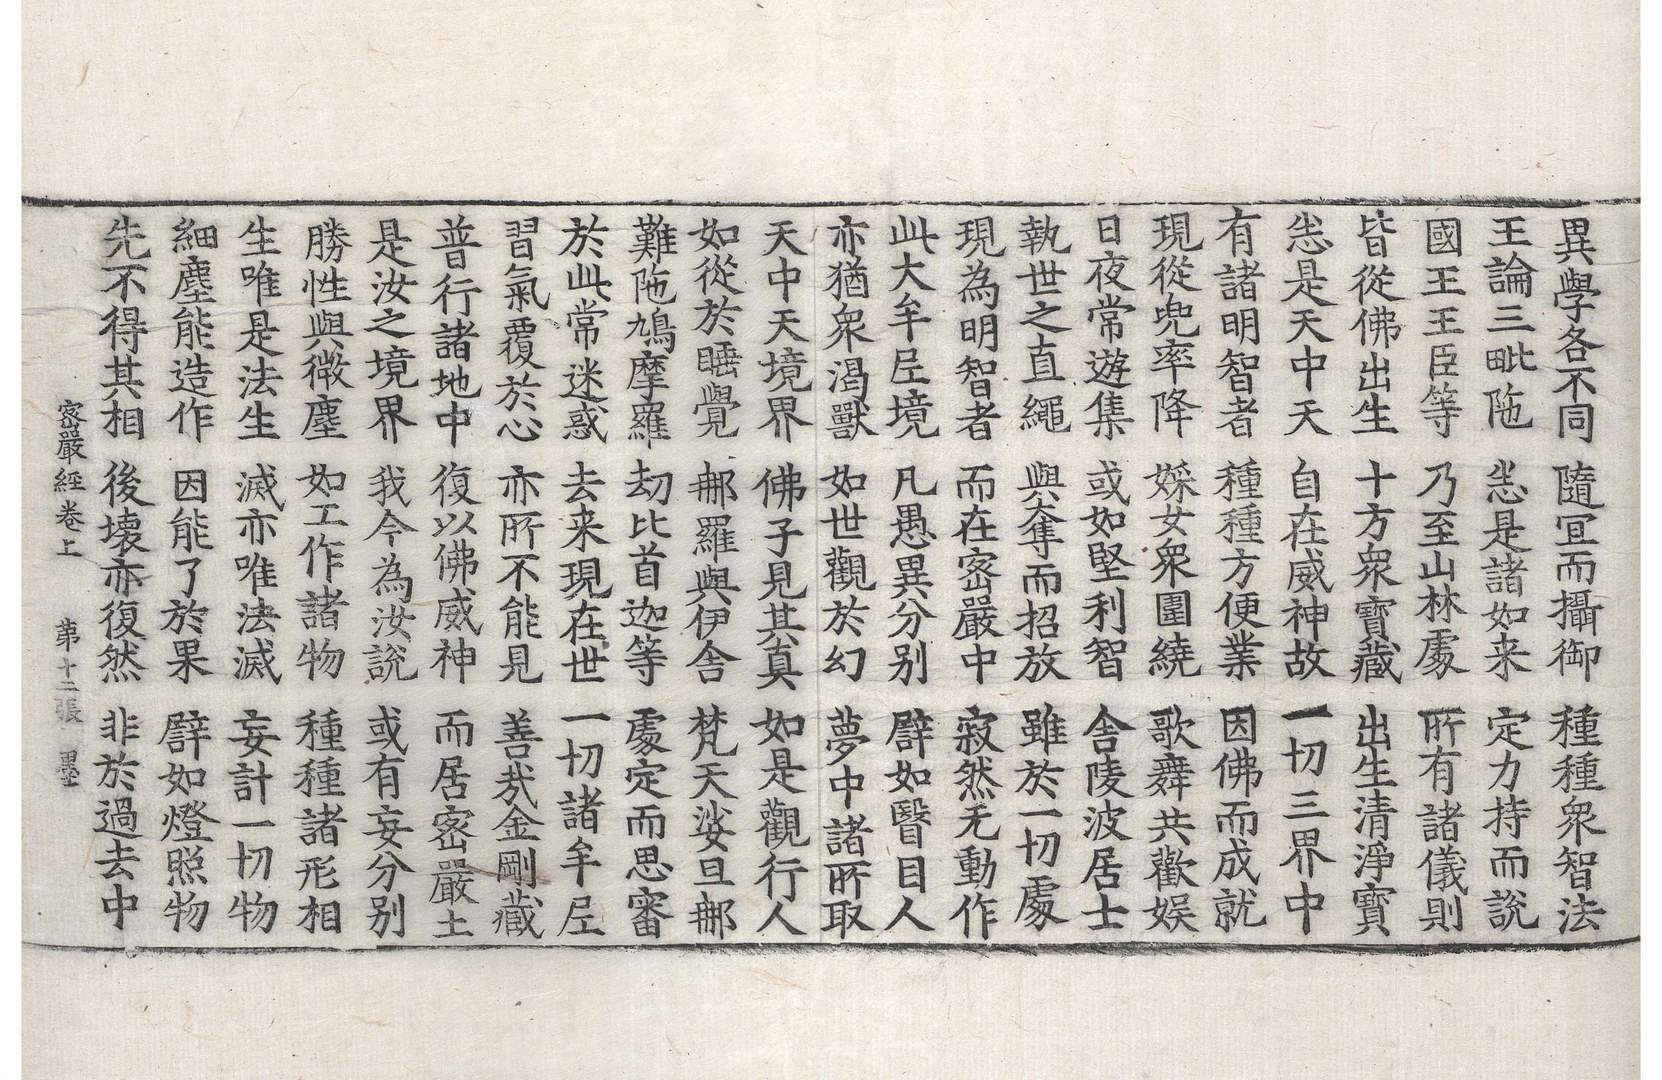 異學各不同 隨冝而攝御 種種衆智法
王論三毗陁 悉是諸如来 定力持而說
國王王臣等 乃至山林處 所有諸儀則
皆從佛出生 十方衆寶藏 出生清淨寶
悉是天中天 自在威神故 一切三界中
有諸明智者 種種方便業 因佛而成就
現從兜率降 婇女衆圍繞 歌舞共歡娱
日夜常遊集 或如堅利智 舎陵波居士
執世之直繩 與奪而招放 雖於一切處
現為明智者 而在密嚴中 寂然无動作
此大牟尼境 凡愚異分别 辟如瞖目人
亦猶衆渴獸 如世觀於幻 夢中諸所取
天中天境界 佛子見其真 如是觀行人
如從於睡覺 那羅與伊舎 梵天娑旦那
難陁鳩摩羅 劫比首迦等 處定而思審
於此常迷惑 去来現在世 一切諸牟尼
習氣覆於心 亦所不能見 善㢤金剛藏
普行諸地中 復以佛威神 而居密嚴土
是汝之境界 我今為汝說 或有妄分别
勝性與微塵 如工作諸物 種種諸形相
生唯是法生 滅亦唯法滅 妄計一切物
細塵能造作 因能了於果 辟如燈照物
先不得其相 後壊亦復然 非於過去中
密嚴經卷上 第十二張 墨